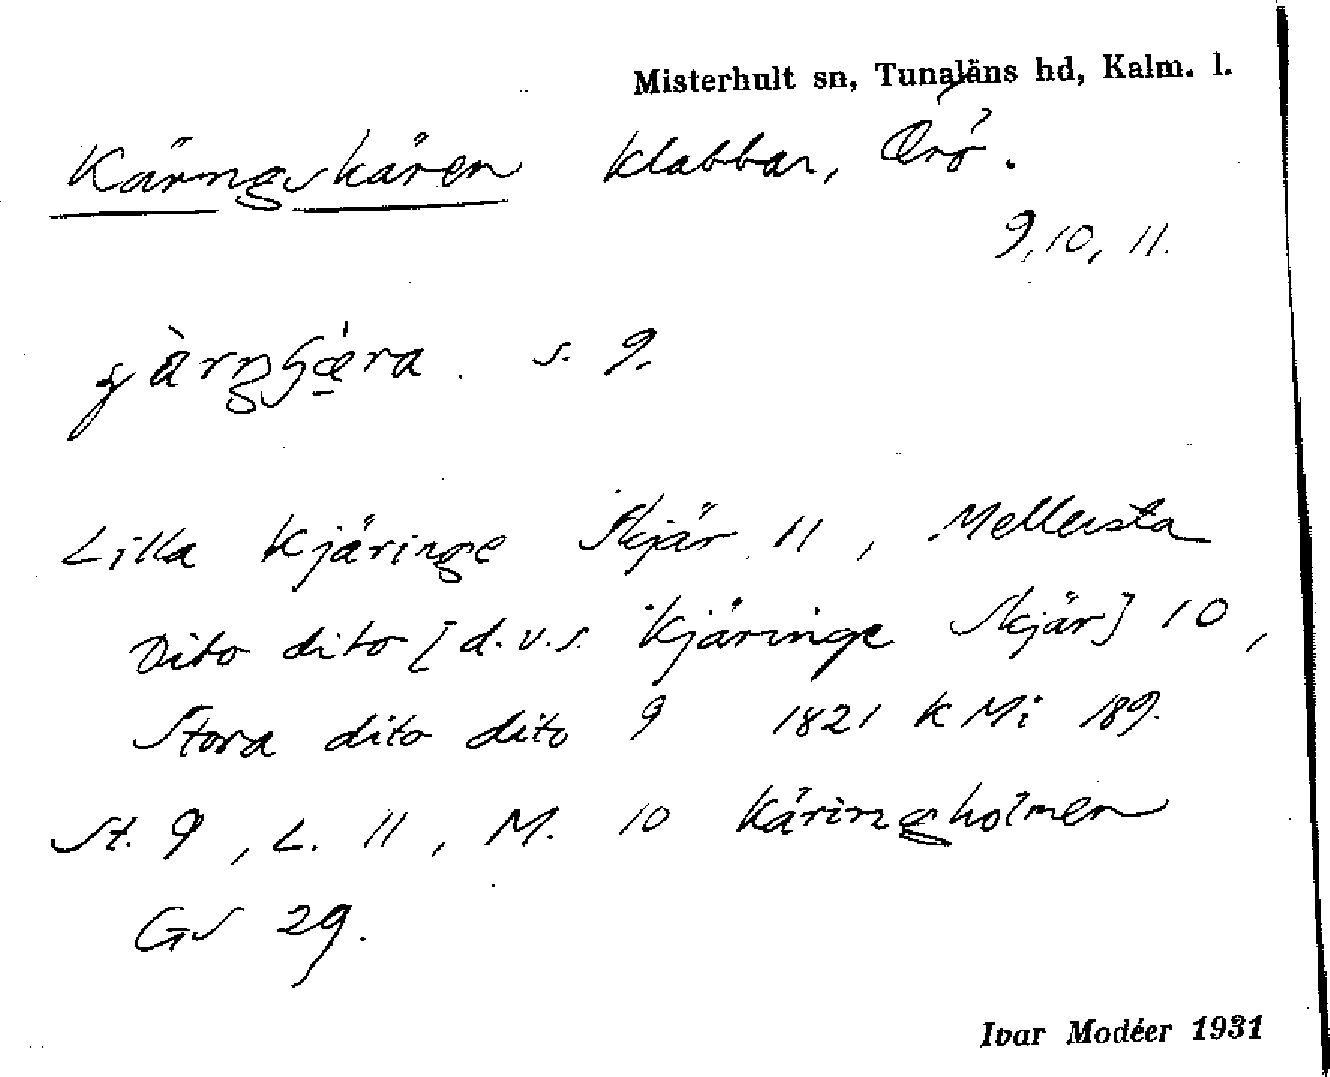 Misterhult sn, Tunaläns hd, Kalm. l.
Kärngskären klabbar, Örö.
9, 10, 11.
s. 9.
Lilla Kjäringe Skjär 11, Mellersta
Dito dito [d.v.s. Kjäringe Skjär] 10,
Stora dito dito 9 1821 k Mi 189.
St. 9, L. 11, M. 10 Käringholmen
GS 29.
Ivar Modéer 1931